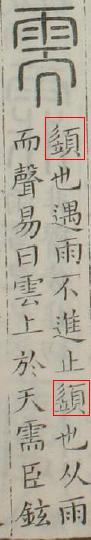 需
䇓也遇雨不進止䇓也从雨
而聲易曰雲上於天需臣鉉